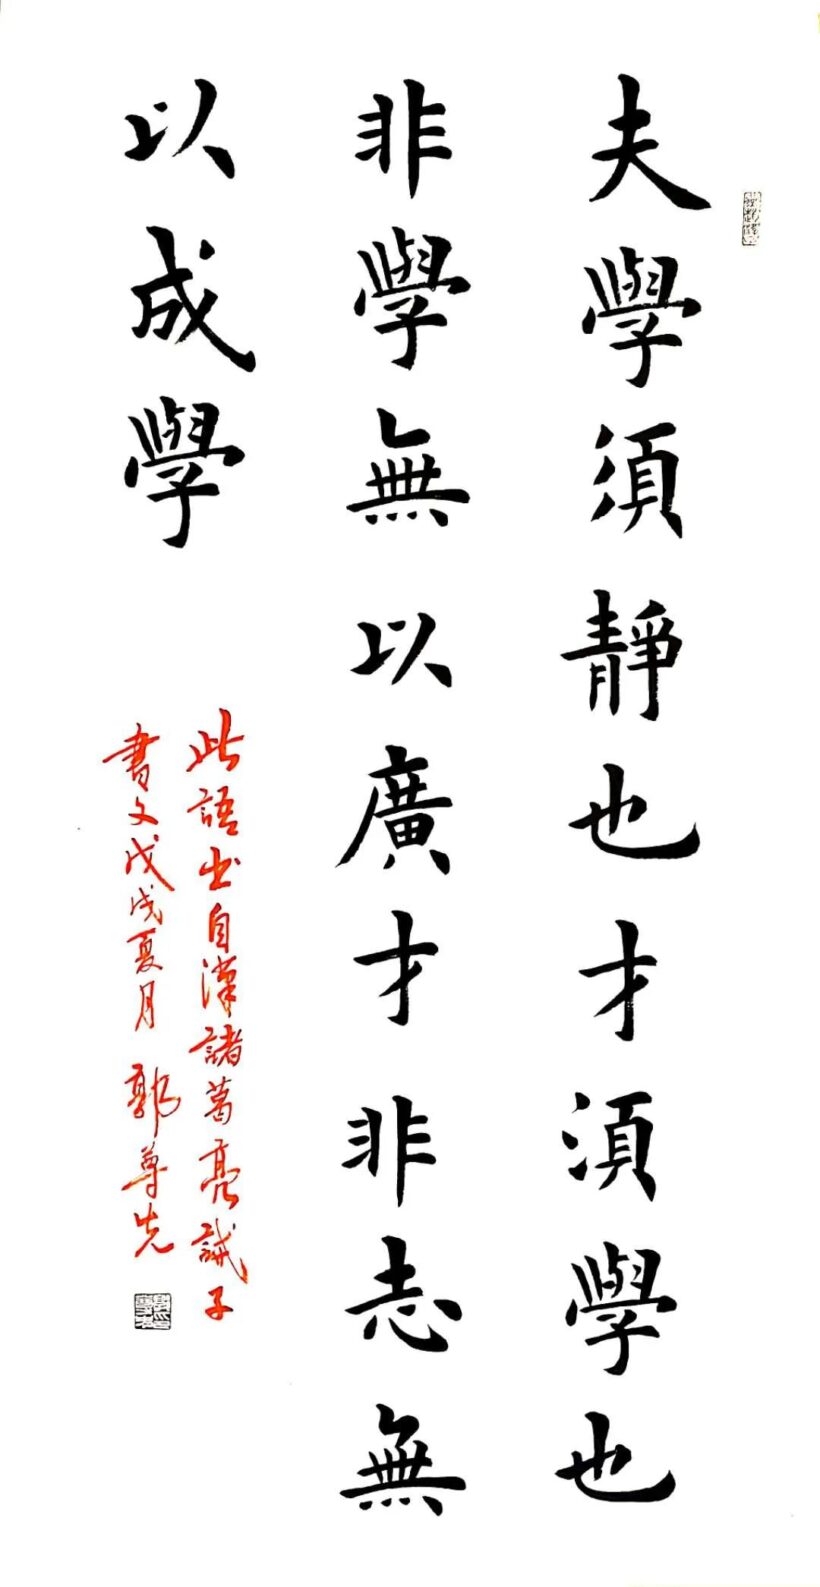 夫學須靜也才須學也
非學無以廣才非志無
以成學
此語出自漢諸葛亮誡子
書文戊戌夏月 郭尊先